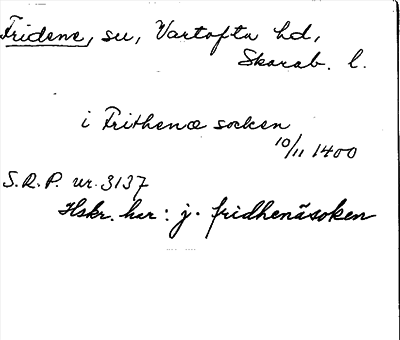 Fridene, su, Vartofta hd,
Skarab. l.
i Frithenæ socken
10/11 1400
S.R.P. nr. 3137
Hskr. har: j. fridhenäsoken